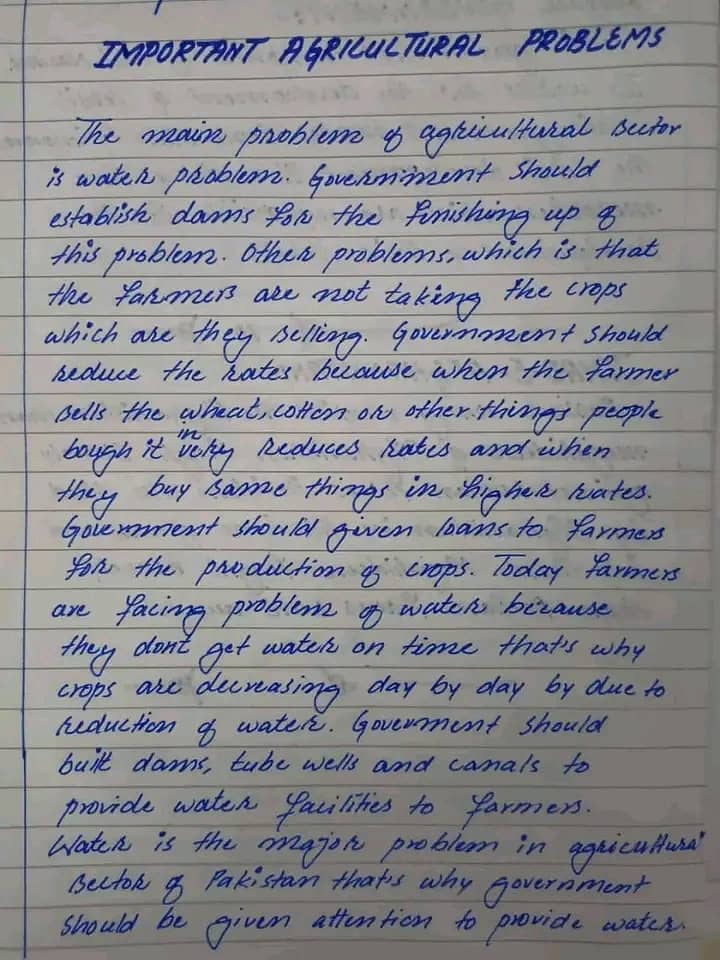 IMPORTANT AGRICULTURAL PROBLEMS
The main problem of agricultural sector
is water problem. Government should
establish dams for the finishing up of
this problem. Other problems, which is that
the farmers are not taking the crops
which are they selling. Government should
reduce the rates because when the farmer
sells the wheat, cotton or other things people
bough it in very reduces rates and when
they buy same things in higher rates.
Government should given loans to farmers
for the production of crops. Today farmers
are facing problem of water because
they dont get water on time that's why
crops are decreasing day by day by due to
reduction of water. Government should
built dams, tube wells and canals to
provide water facilities to farmers.
Water is the major problem in agricultural
sector of Pakistan that's why government
should be given attention to provide water.